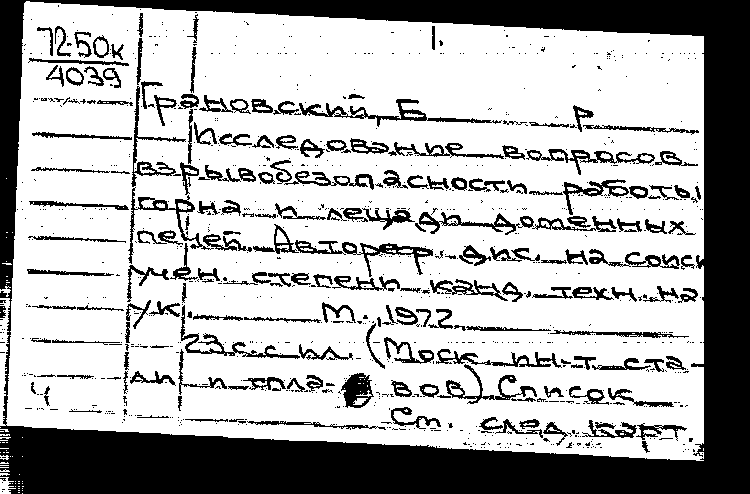 1.
72-50к
4039
Грановский, Б Р
Исследование вопросов
взрывобезопасности работы
горна и лещади доменных
печей. Автореф. дис. на соиск
учен. степени канд. техн. на
ук. М., 1972
23 с. с ил. (Моск. ин-т ста-
ли и спла- вов) Список
См. след. карт.
4